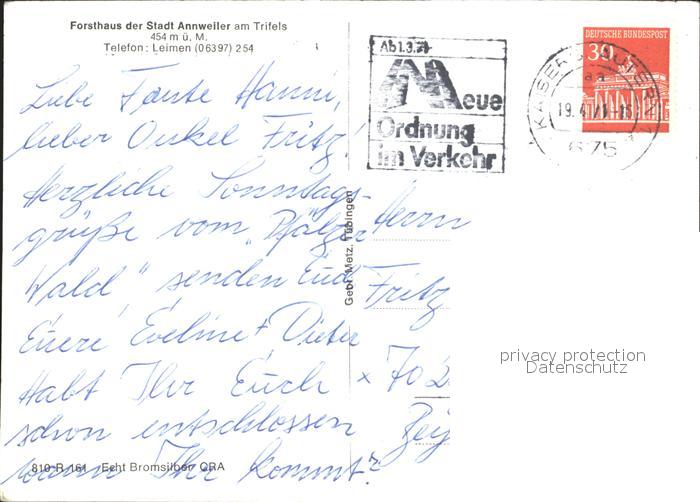 Forsthaus der Stadt Annweiler am Trifels
454 m ü. M.
Telefon: Leimen (06397) 254
Liebe Tante Hanni,
lieber Onkel Fritz!
Herzliche Sonntags-
grüße vom „Pfälzer
Wald" senden Euch
Eure Eveline + Dieter
Habt Ihr Euch
schon entschlossen
wann Ihr kommt?
810 R 161 Echt Bromsilber CRA
Gebr. Metz, Tübingen
Ab 1.3.71
Neue
Ordnung
im Verkehr
DEUTSCHE BUNDESPOST
30
KAISERSLAUTERN 1
aa
19.4.71-18
675
Herrn
Fritz
x 702
privacy protection
Datenschutz